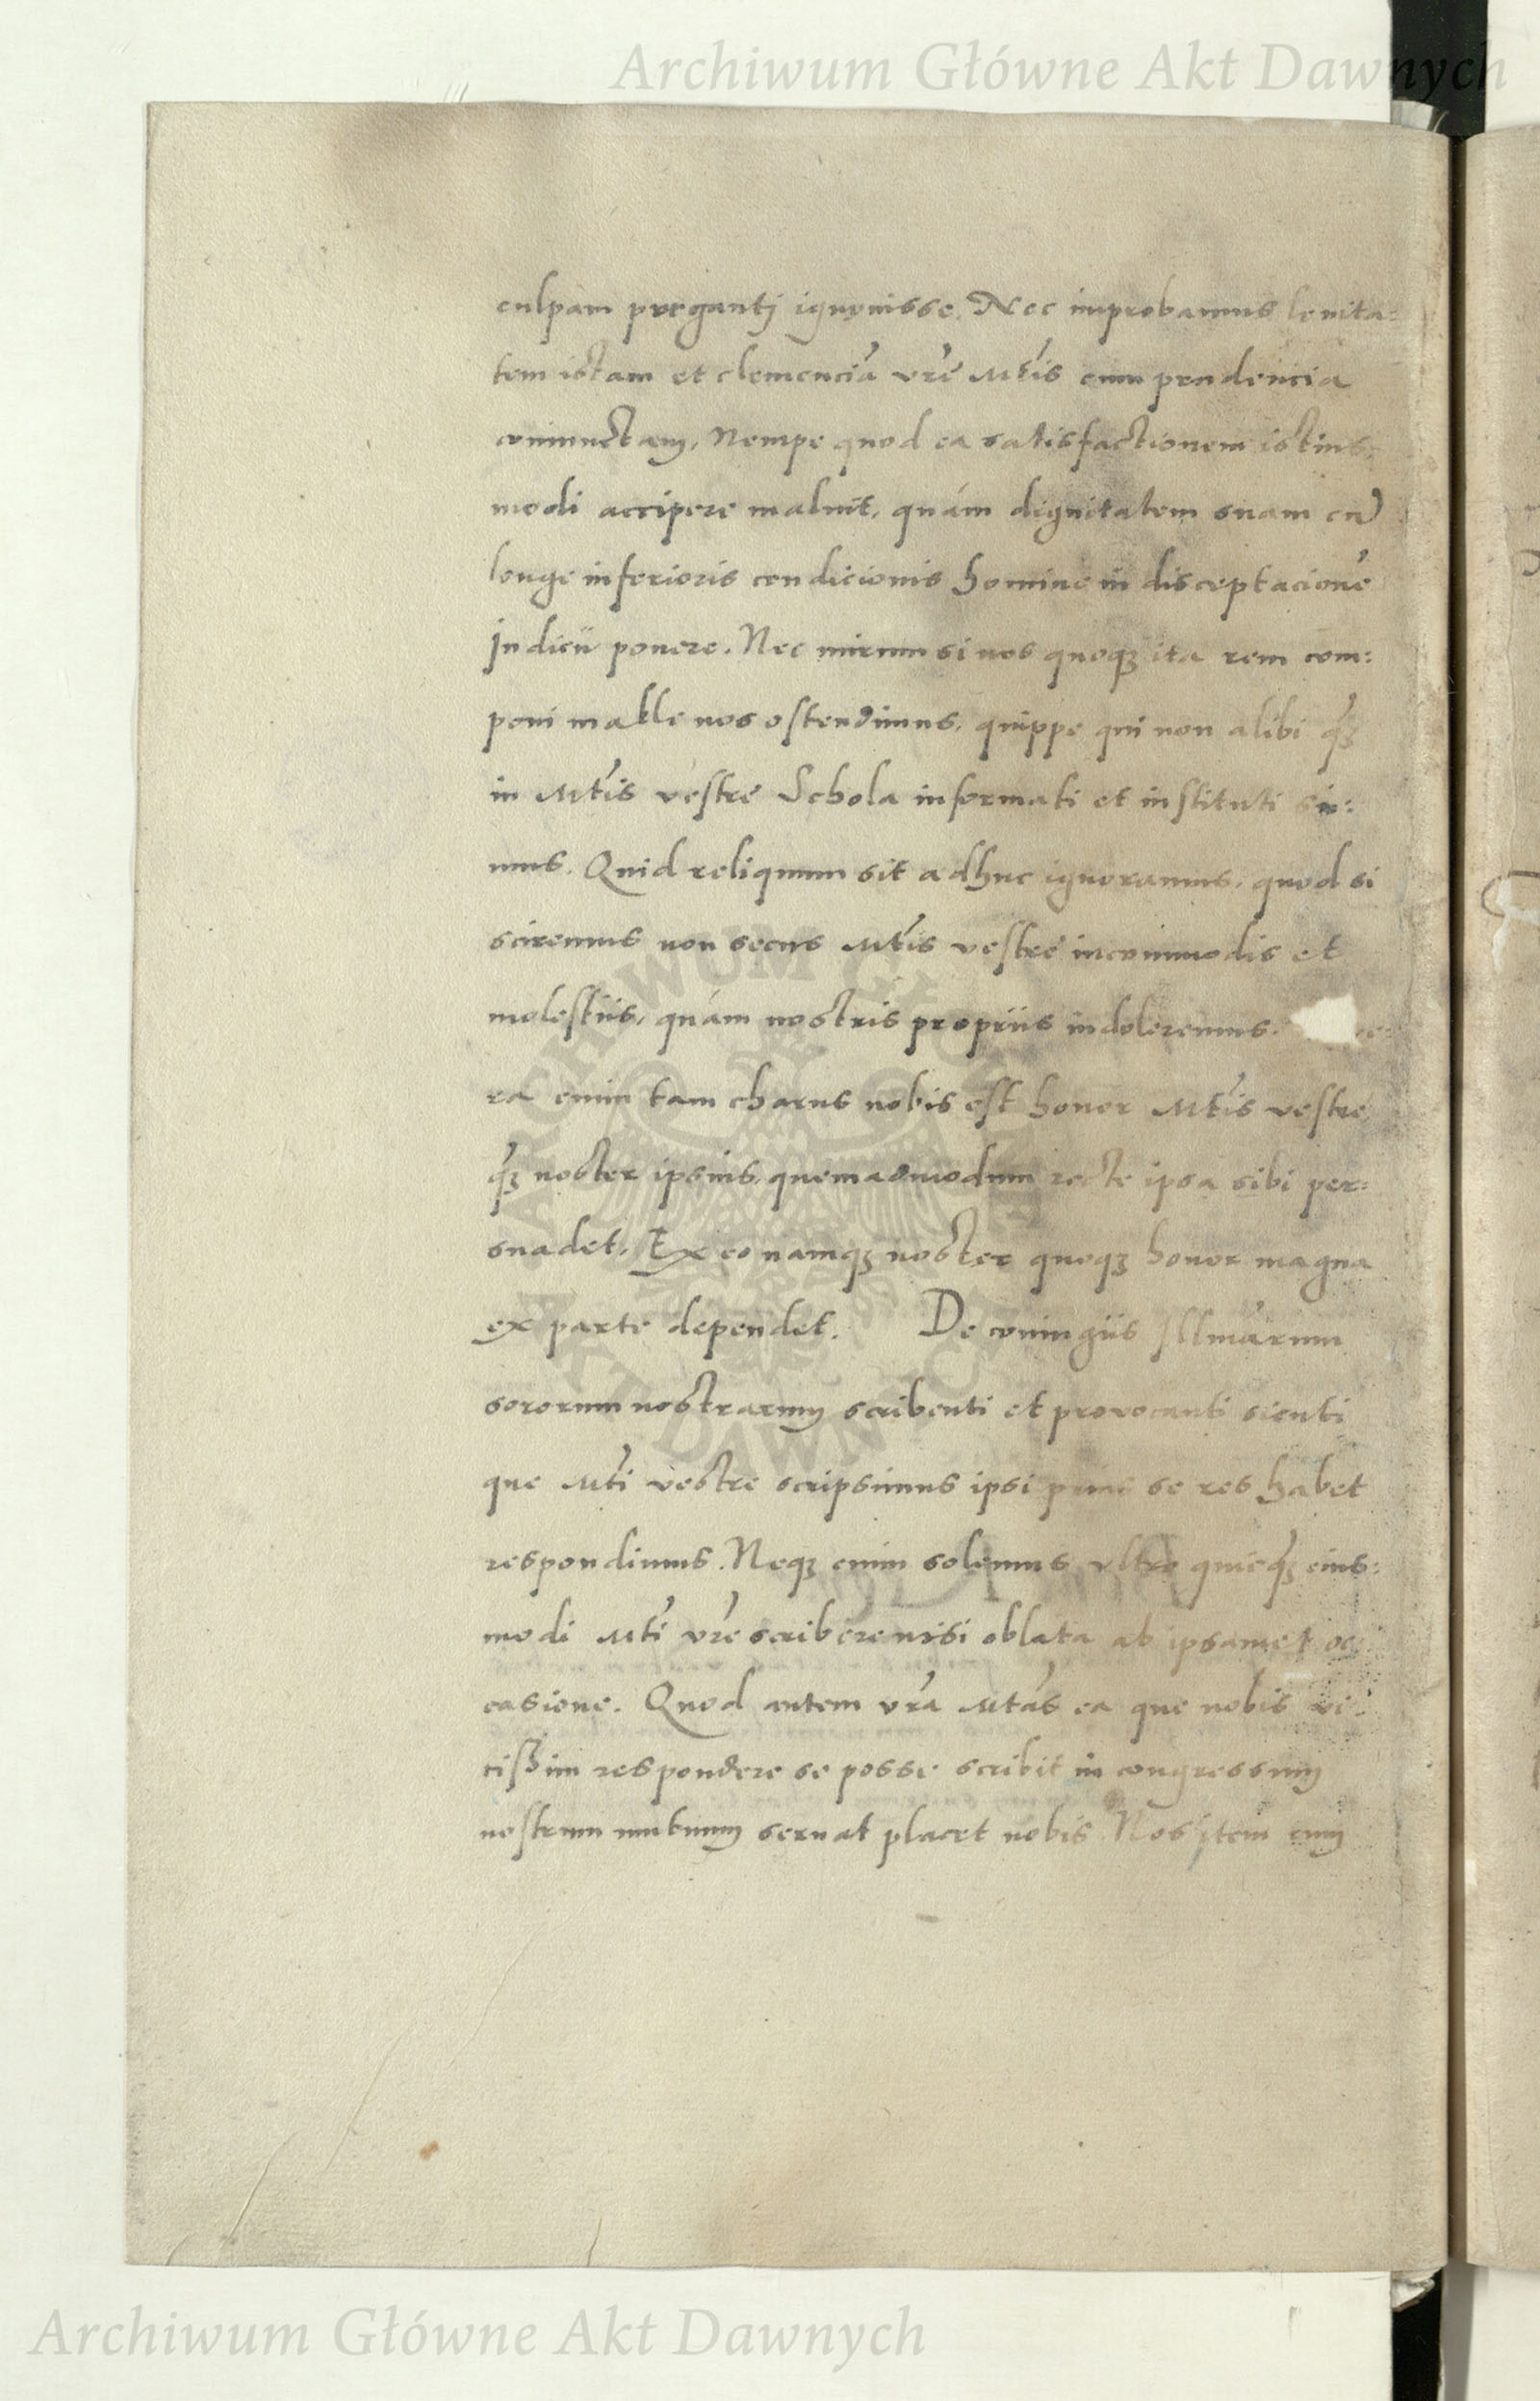 Archiwum Główne Akt Dawnych
culpam purganti ignouisse. Nec improbamus lenita-
tem istam et clemenciã vrẽ Mtis cum prudencia
coniunctam, Nempe quod ea satisfactionem istius
modi accipere maluit, quám dignitatem suam cũ
longe inferioris condicionis homine in disceptacionẽ
Iudicii ponere. Nec mirum si nos quoqȝ ita rem com:
poni malle nos ostendimus, quippe qui non alibi qȝ̃
in Mtis vestrę Schola informati et instituti si-:
mus. Quid reliquum sit adhuc ignoramus, quod si
sciremus non secus Mtis vestrę incommodis et
molestiis, quám nostris propriis indoleremus.
ra enim tam charus nobis est honor Mtis vestre
qȝ̃ noster ipsius, quemadmodum recte ipsa sibi per:
suadet, Ex eo namqȝ noster quoqȝ honor magna
ex parte dependet. De coniugiis Illmarum
sororum nostrarum scribenti et prouocanti sicuti
que Mti vestre scripsimus ipsi se res habet
respondimus. Neqȝ enim solemus vltro quicqȝ̃ eius:
modi Mti vrẽ scribere nisi oblata ab ipsamet oc:
casione. Quod autem vrã Mtas ea que nobis ve:
rißim respondere se posse scribit in congressum
nostrum mutuum seruat placet nobis. Nos item cum
ARCHIWUM GŁÓWNE
AKT DAWNYCH
Archiwum Główne Akt Dawnych